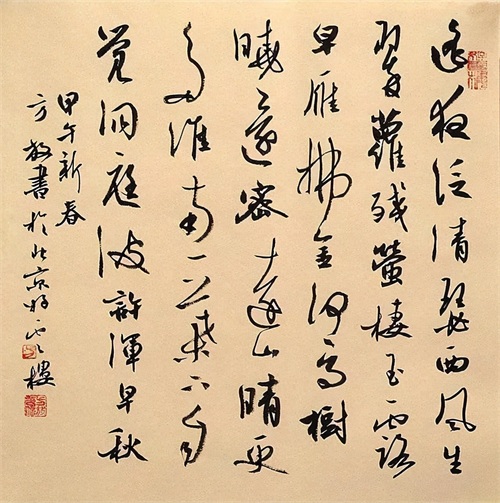 遙夜泛清瑟西風生
翠蘿殘螢棲玉露
早雁拂金河高樹
曉還密遠山晴更
多淮南一葉下自
覺洞庭波許渾早秋
甲午新春
方書於北京樓